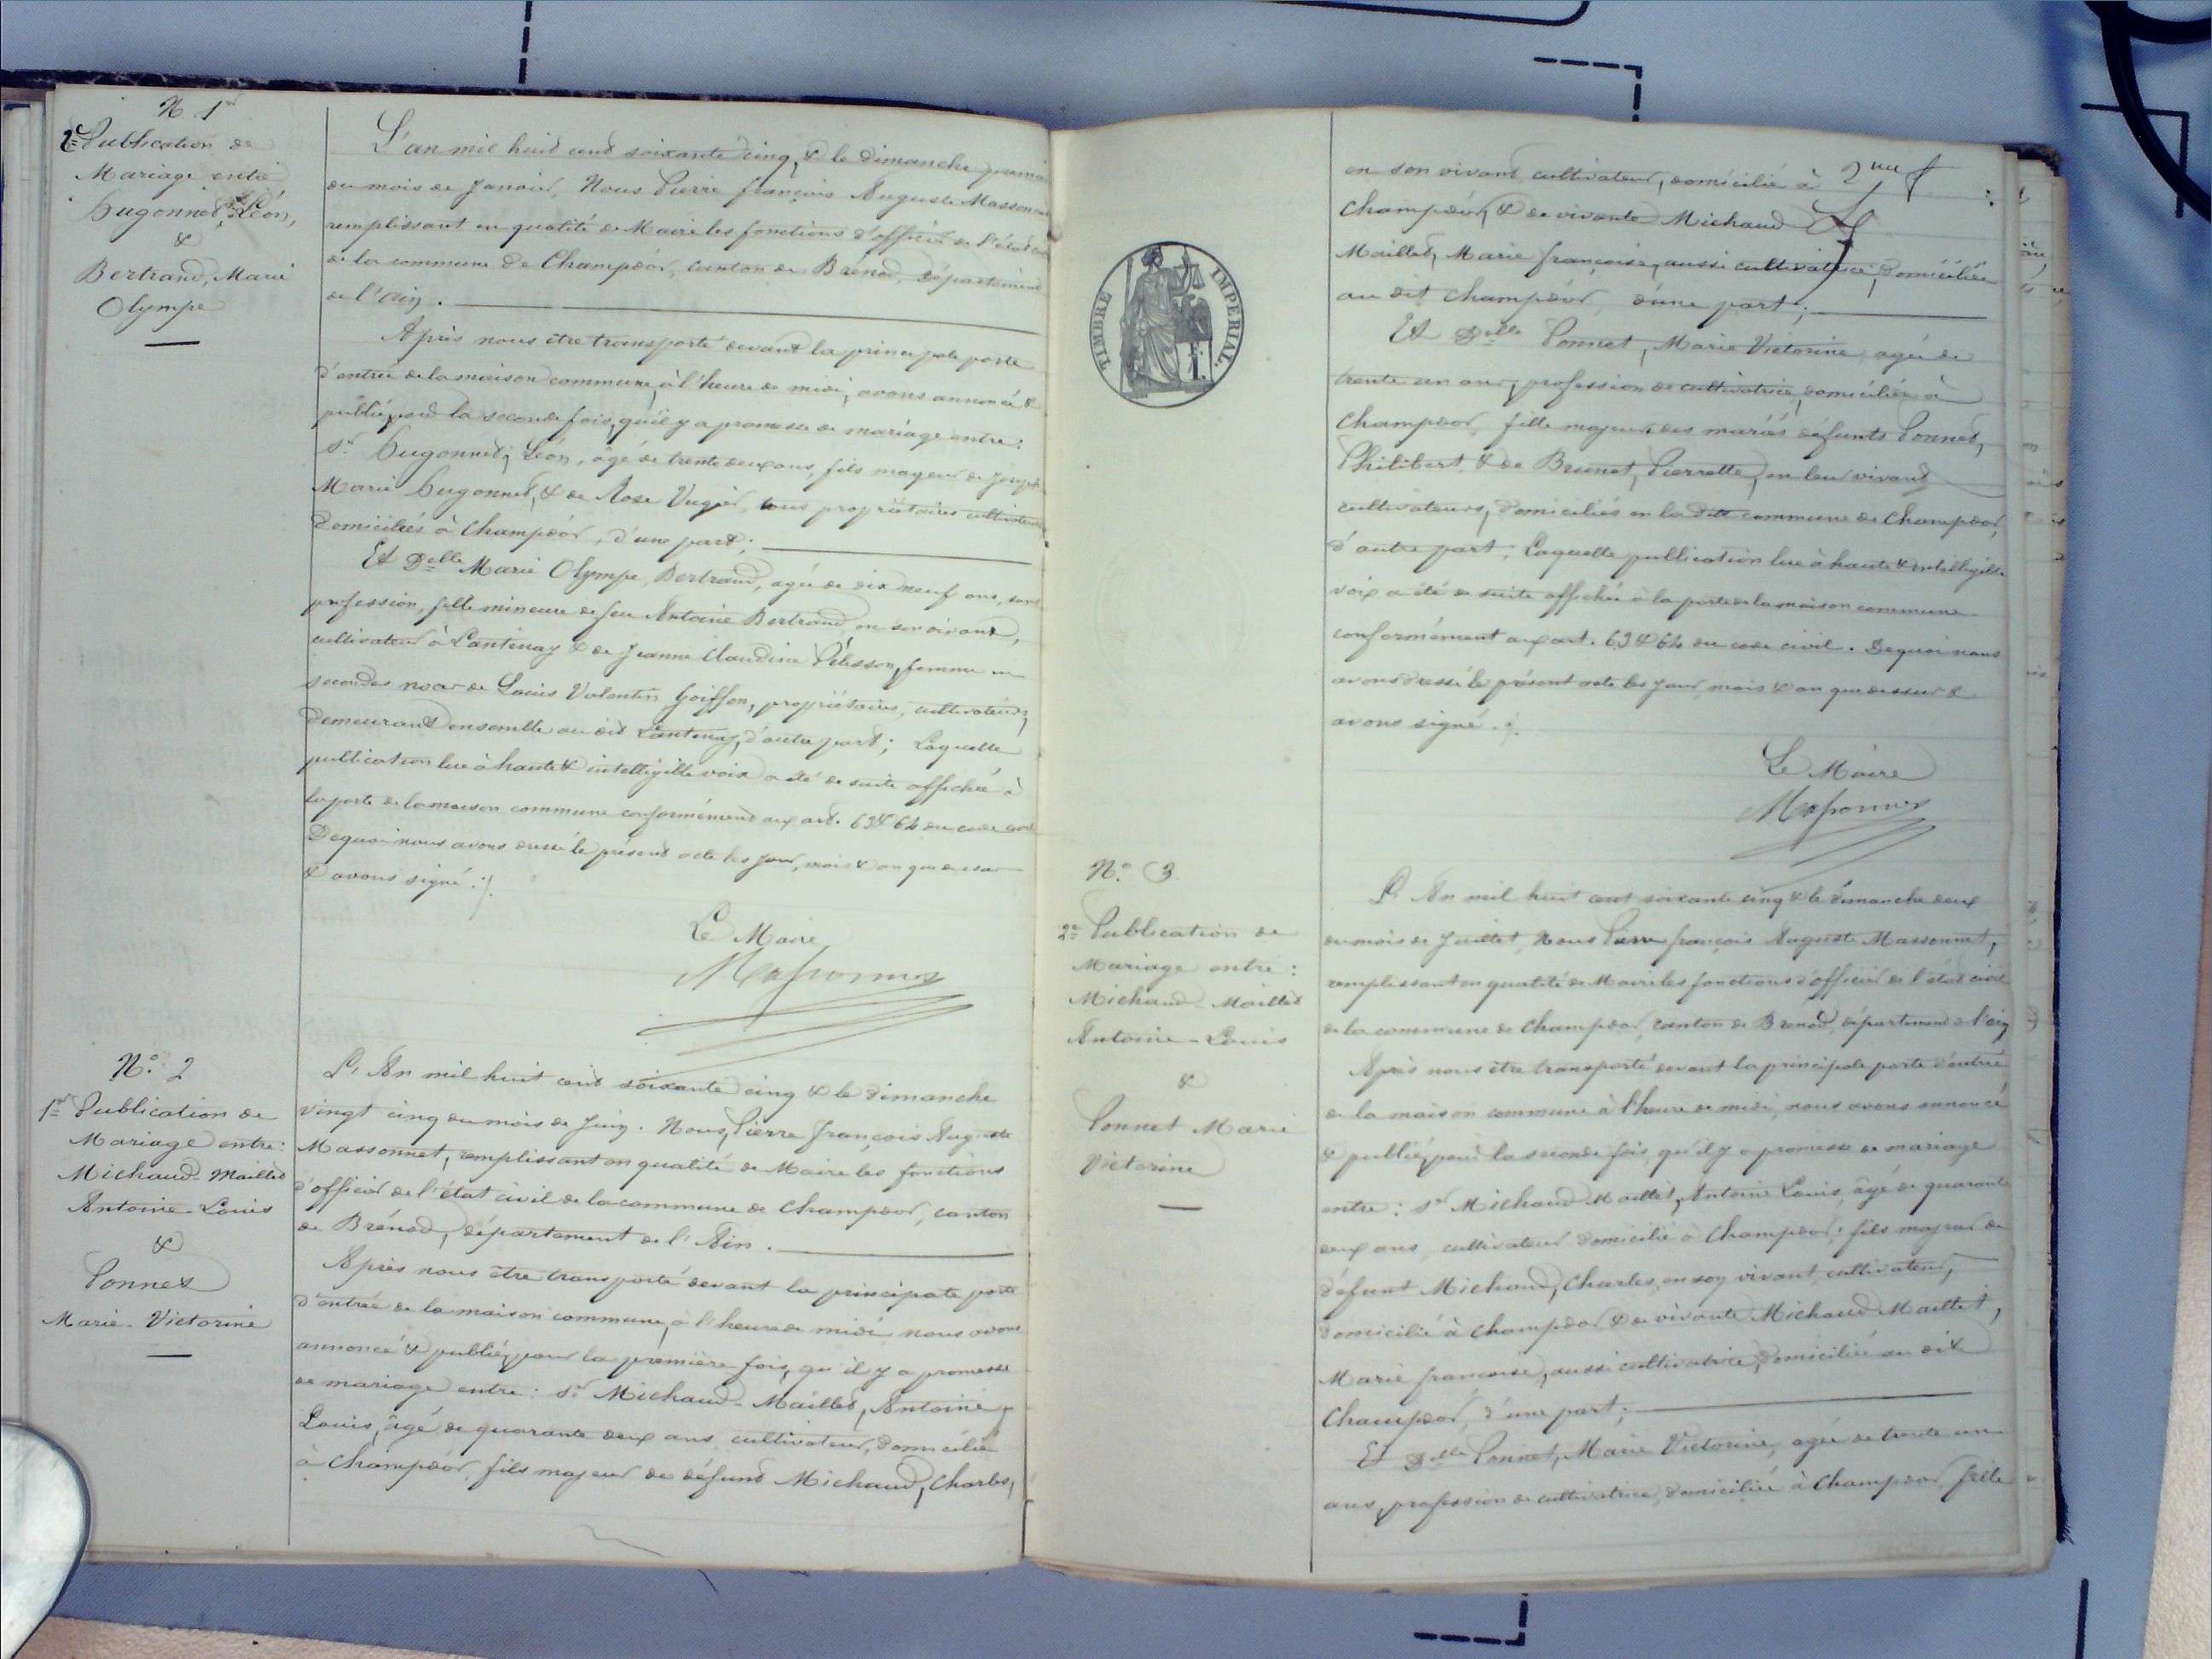 N 1er
2e Publication de
Mariage entre
hugonnet, Léon,
&
Bertrand, Marie
Olympe
L'an mil huit cent soixante cinq, & le dimanche premier
du mois de janvier, Nous Pierre françois Auguste Massonnet
remplissant en qualité de Maire les fonctions d'officier de l'état
de la commune de Champdor, canton de Brénod, département
de l'ain.
Après nous être transporté devant la principale porte
d'entrée de la maison commune, à l'heure de midi, avons annoncé &
publié, pour la seconde fois, qu'il y a promesse de mariage entre:
Sr. hugonnet, Léon, âgé de trente deux ans, fils majeur de joseph
Marie hugonnet, & de Rose Vugier, tous propriétaires cultivateurs
domiciliés à Champdor, d'une part;
Et Delle Marie Olympe Bertrand, agée de dix neuf ans, sans
profession, fille mineure de feu Antoine Bertrand en son vivant,
cultivateur à Lantenay & de jeanne Claudine Pélisson, femme en
secondes noces de Louis Valentin Goiffon, propriétaires, cultivateurs,
demeurant ensemble au dit Lantenay, d'autre part; Laquelle
publication lue à haute & intelligible voix a été de suite affichée à
la porte de la maison commune conformément aux art. 63 & 64 du code civil
Dequoi nous avons dressé le présent acte les jour, mois & an que dessus
& avons signé ./.
Le Maire
Massonnet
No. 2
1re Publication de
Mariage entre:
Michaud-Maillet
Antoine-Louis
&
Ponnet
Marie-Victorine
L'An mil huit cent soixante cinq & le dimanche
vingt cinq du mois de juin. Nous, Pierre françois Auguste
Massonnet, remplissant en qualité de Maire les fonctions
d'officier de l'état civil de la commune de Champdor, canton
de Brénod, département de l'Ain.
Après nous être transporté devant la principale porte
d'entrée de la maison commune, à l'heure de midi nous avons
annoncé & publié, pour la première fois, qu'il y a promesse
de mariage entre: Sr Michaud-Maillet, Antoine
Louis, âgé de quarante deux ans, cultivateur, domicilié
à Champdor, fils majeur de défunt Michaud, Charles,
2me f
en son vivant cultivateur, domicilié à
Champdor, & de vivante Michaud
Maillet, Marie françoise, aussi cultivatrice, domiciliée
au dit Champdor, d'une part;
Et Delle Ponnet, Marie Victorine, agée de
trente un ans, profession de cultivatrice, domiciliée à
Champdor, fille majeure des mariés défunts Ponnet,
Philibert & de Brunet, Pierrette, en leur vivant
cultivateurs, domiciliés en la dite commune de Champdor,
d'autre part; Laquelle publication lue à haute & intelligible
voix a été de suite affichée à la porte de la maison commune
conformément aux art. 63 & 64 du code civil. Dequoi nous
avons dressé le présent acte les jour mois & an que dessus &
avons signé ./.
Le Maire
Massonnet
TIMBRE IMPERIAL
No. 3
2e Publication de
Mariage entre:
Michaud-Maillet
Antoine-Louis
&
Ponnet Marie
Victorine
L'An mil huit cent soixante cinq & le dimanche deux
du mois de juillet, Nous Pierre françois Auguste Massonnet,
remplissant en qualité de Maire les fonctions d'officier de l'état civil
de la commune de Champdor, canton de Brenod, département de l'ain
Après nous être transporté devant la principale porte d'entrée
de la maison commune à l'heure de midi, nous avons annoncé
& publié, pour la seconde fois, qu'il y a promesse de mariage
entre: Sr Michaud Maillet, Antoine Louis, âgé de quarante
deux ans, cultivateur domicilié à Champdor, fils majeur de
défunt Michaud, Charles, en son vivant, cultivateur,
domicilié à Champdor & de vivante Michaud Maillet,
Marie françoise, aussi cultivatrice, domiciliée au dit
Champdor, d'une part;
Et Delle Ponnet, Marie Victorine, agée de trente un
ans, profession de cultivatrice, domiciliée à Champdor, fille